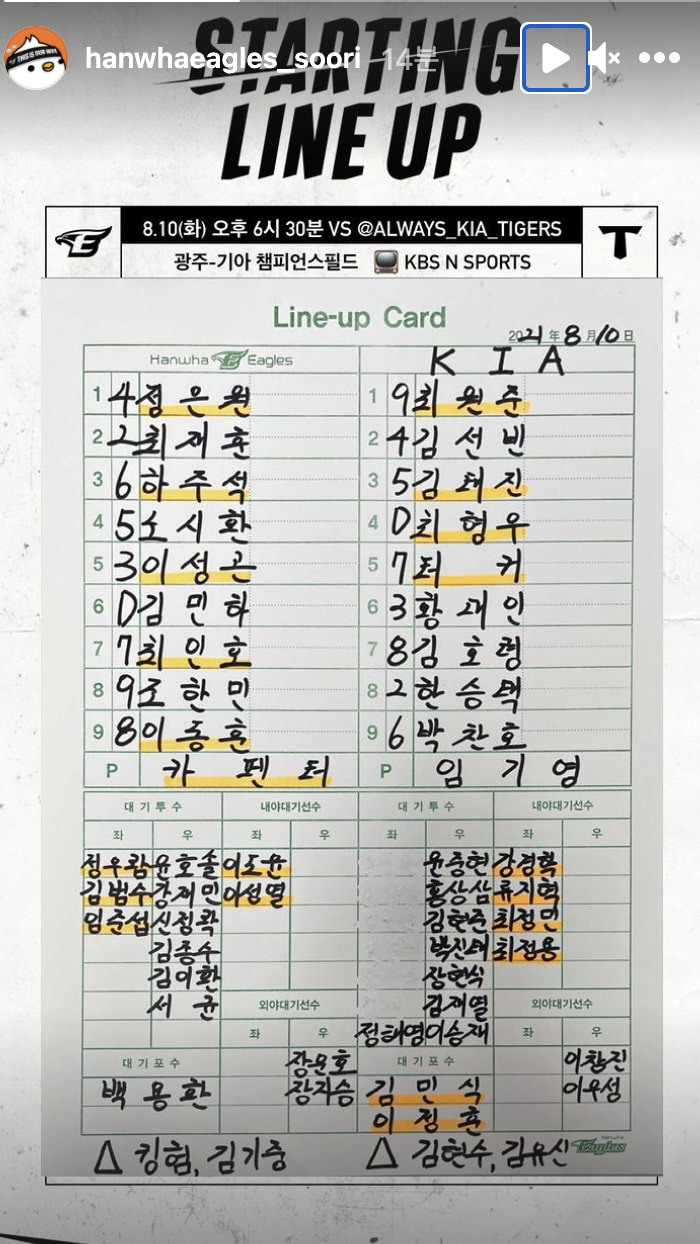 STARTING
hanwhaeagles_soori 14분
LINE UP
8.10(화) 오후 6시 30분 VS @ALWAYS_KIA_TIGERS
광주-기아 챔피언스필드 KBS N SPORTS
Line-up Card
2021 年 8 月 10 日
Hanwha Eagles K I A
1 4 정은원 1 9 최원준
2 2 최재훈 2 4 김선빈
3 6 하주석 3 5 김태진
4 5 노시환 4 D 최형우
5 3 이성곤 5 7 터커
6 D 김민하 6 3 황대인
7 7 최인호 7 8 김호령
8 9 조한민 8 2 한승택
9 8 이동훈 9 6 박찬호
P 카펜터 P 임기영
대기투수 내야대기선수 대기투수 내야대기선수
좌 우 좌 우 좌 우 좌 우
정우람 윤호솔 이도윤 윤중현 강경학
김범수 강재민 이성열 홍상삼 류지혁
임준섭 신정락 김현준 최정민
김종수 박진태 최정용
김이환 장현식
서균 외야대기선수 김재열 외야대기선수
좌 우 정해영 이승재 좌 우
대기포수 장운호 대기포수 이창진
백용환 장지승 김민식 이우성
이정훈
△ 킹험, 김기중 △ 김현수, 김유신
Hanwha Eagles